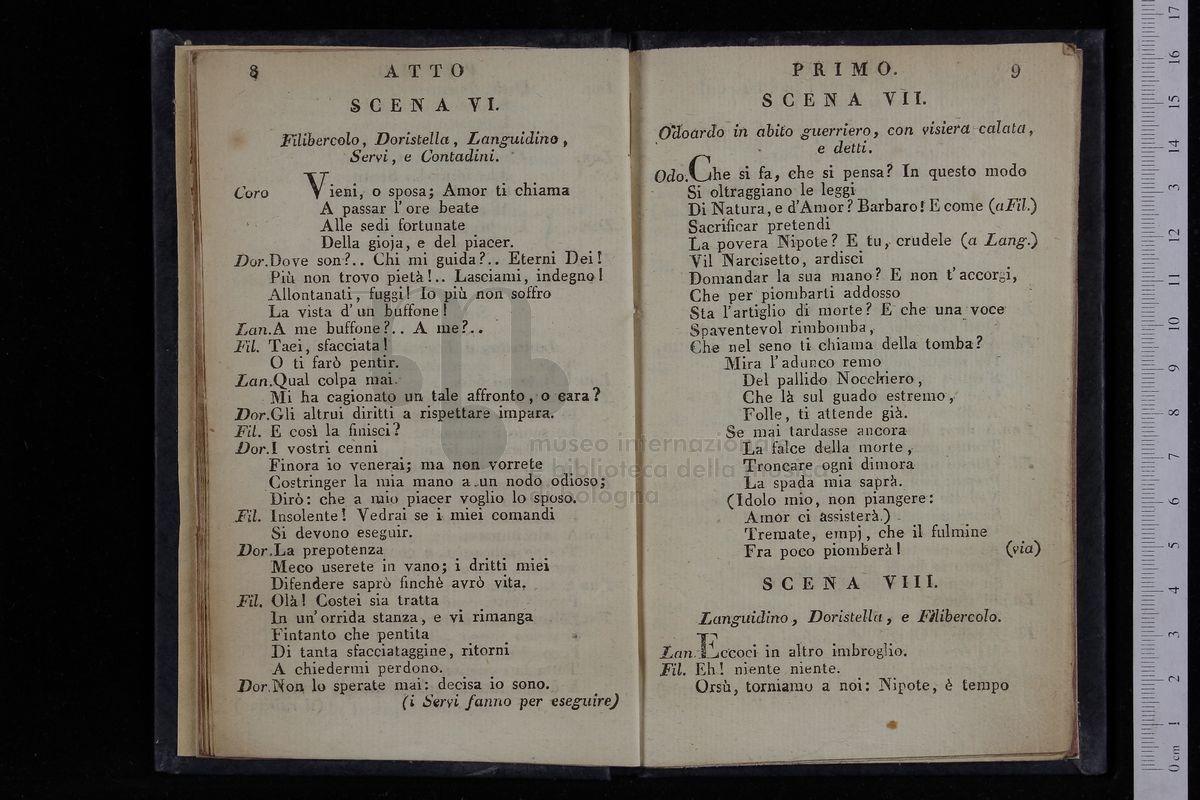 8 ATTO
SCENA VI.
Filibercolo, Doristella, Languidino,
Servi, e Contadini.
Coro Vieni, o sposa; Amor ti chiama
A passar l'ore beate
Alle sedi fortunate
Della gioja, e del piacer.
Dor. Dove son?.. Chi mi guida?.. Eterni Dei!
Più non trovo pietà!.. Lasciami, indegno!
Allontanati, fuggi! Io più non soffro
La vista d'un buffone!
Lan. A me buffone?.. A me?..
Fil. Taci, sfacciata!
O ti farò pentir.
Lan. Qual colpa mai
Mi ha cagionato un tale affronto, o cara?
Dor. Gli altrui diritti a rispettare impara.
Fil. E così la finisci?
Dor. I vostri cenni
Finora io venerai; ma non vorrete
Costringer la mia mano a un nodo odioso;
Dirò: che a mio piacer voglio lo sposo.
Fil. Insolente! Vedrai se i miei comandi
Si devono eseguir.
Dor. La prepotenza
Meco userete in vano; i dritti miei
Difendere saprò finchè avrò vita.
Fil. Olà! Costei sia tratta
In un'orrida stanza, e vi rimanga
Fintanto che pentita
Di tanta sfacciataggine, ritorni
A chiedermi perdono.
Dor. Non lo sperate mai: decisa io sono.
(i Servi fanno per eseguire)
PRIMO. 9
SCENA VII.
Odoardo in abito guerriero, con visiera calata,
e detti.
Odo. Che si fa, che si pensa? In questo modo
Si oltraggiano le leggi
Di Natura, e d'Amor? Barbaro! E come (a Fil.)
Sacrificar pretendi
La povera Nipote? E tu, crudele (a Lang.)
Vil Narcisetto, ardisci
Domandar la sua mano? E non t'accorgi,
Che per piombarti addosso
Sta l'artiglio di morte? E che una voce
Spaventevol rimbomba,
Che nel seno ti chiama della tomba?
Mira l'adunco remo
Del pallido Nocchiero,
Che là sul guado estremo,
Folle, ti attende già.
Se mai tardasse ancora
La falce della morte,
Troncare ogni dimora
La spada mia saprà.
(Idolo mio, non piangere:
Amor ci assisterà.)
Tremate, empj, che il fulmine
Fra poco piomberà! (via)
SCENA VIII.
Languidino, Doristella, e Filibercolo.
Lan. Eccoci in altro imbroglio.
Fil. Eh! niente niente.
Orsù, torniamo a noi: Nipote, è tempo
museo internazionale
e biblioteca della musica
di bologna
0 cm 1 2 3 4 5 6 7 8 9 10 11 12 13 14 15 16 17